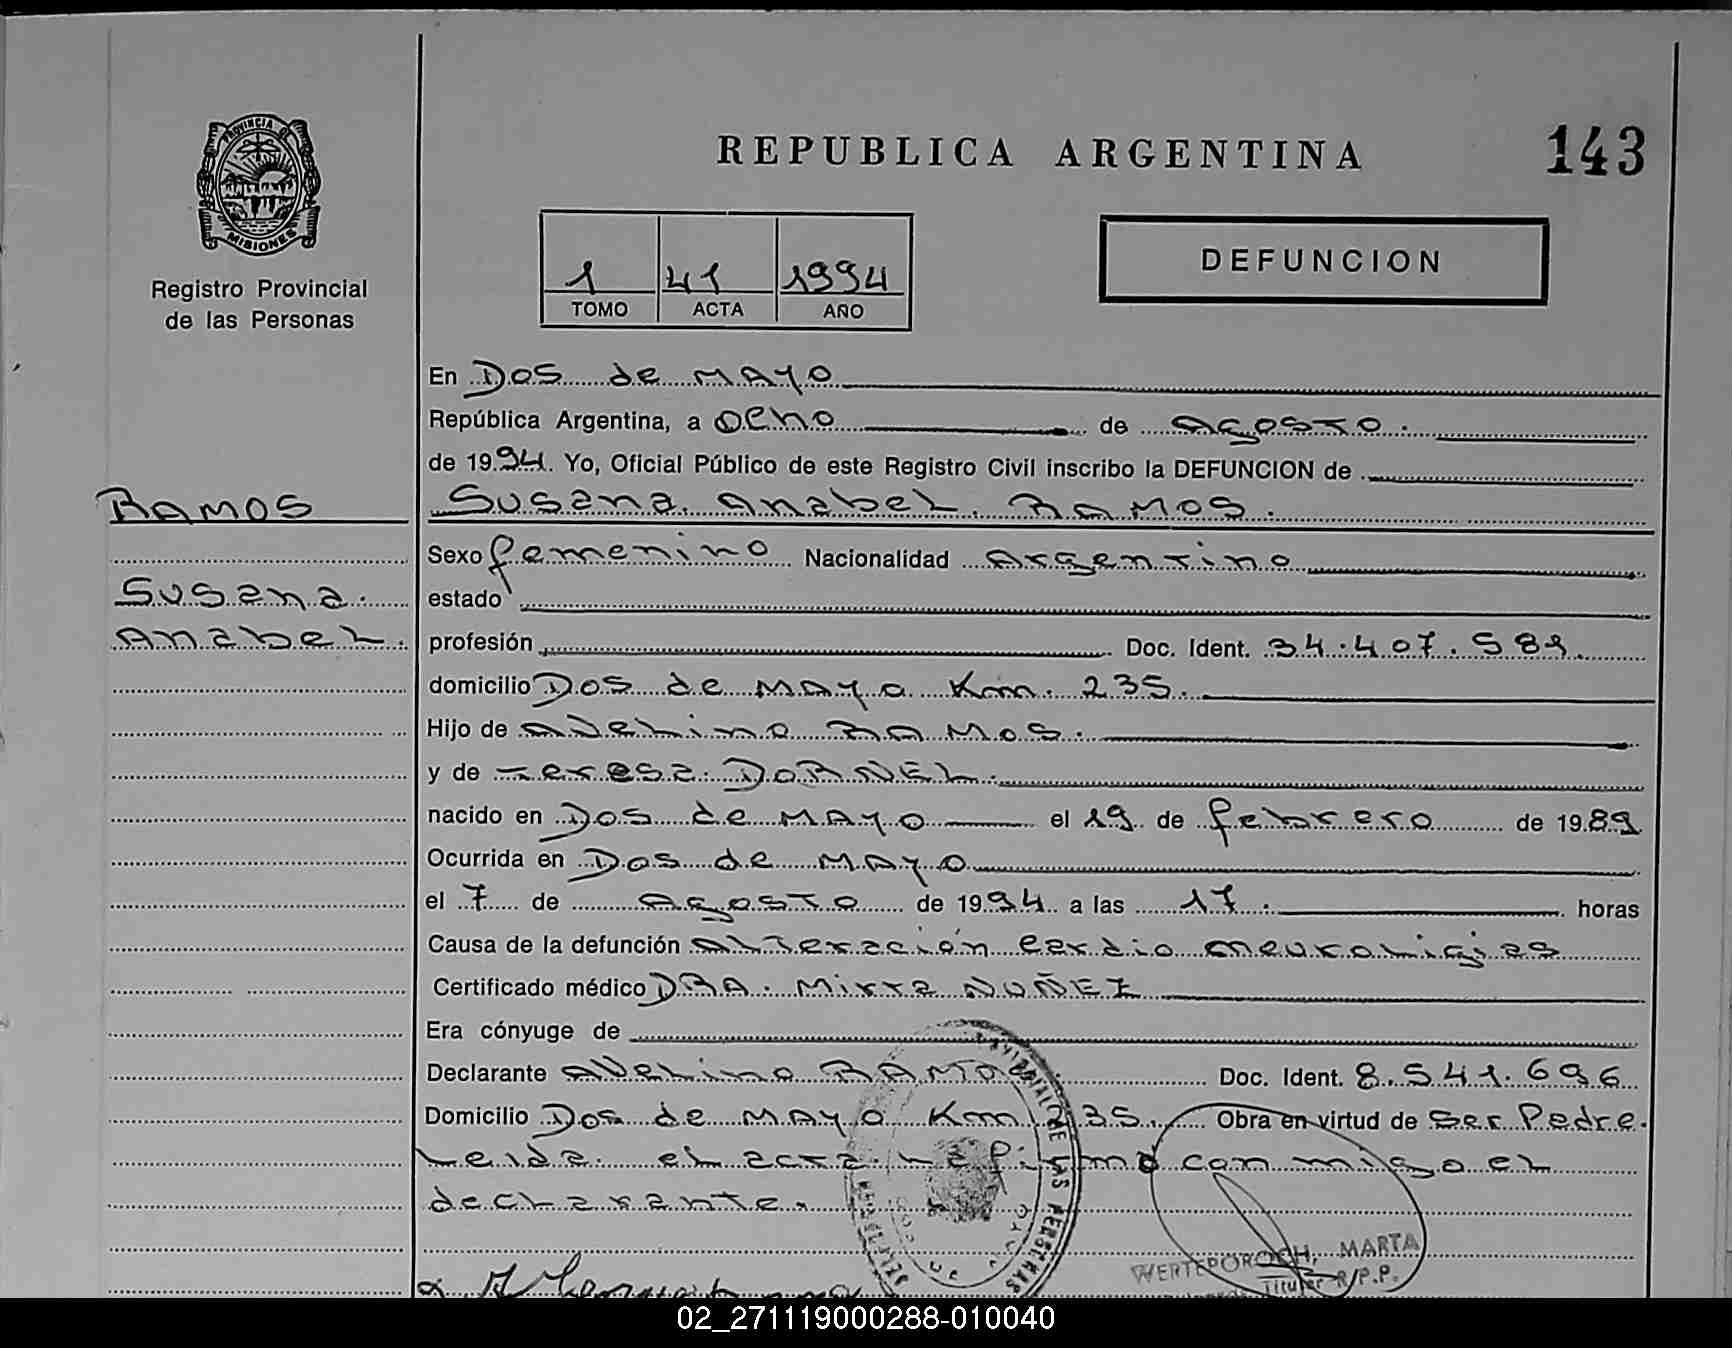 PROVINCIA DE
MISIONES
Registro Provincial
de las Personas
REPUBLICA ARGENTINA
143
1 41 1994
TOMO ACTA AÑO
DEFUNCION
En Dos de MAYO
República Argentina, a ocho de Agosto.
de 1994. Yo, Oficial Público de este Registro Civil inscribo la DEFUNCION de
RAMOS
Susana Anabel RAMOS.
Sexo femenino Nacionalidad Argentino
Susana.
estado
Anabel.
profesión Doc. Ident. 34.407.589.
domicilio Dos de MAYO Km. 235.
Hijo de Adelino RAMOS.
y de Teresa DORNEL.
nacido en Dos de MAYO el 19 de febrero de 1989
Ocurrida en Dos de MAYO
el 7 de Agosto de 1994 a las 17. horas
Causa de la defunción Alteración cardio neurologias
Certificado médico DRA. Mirta NUÑEZ
Era cónyuge de
Declarante Adelino RAMOS Doc. Ident. 8.541.696
Domicilio Dos de MAYO Km 35. Obra en virtud de Ser Padre.
Leida el acta la firma con migo el
declarante.
DE LAS PERSONAS
WERTEPOROCH, MARTA
Titular R/P.P.
02_271119000288-010040